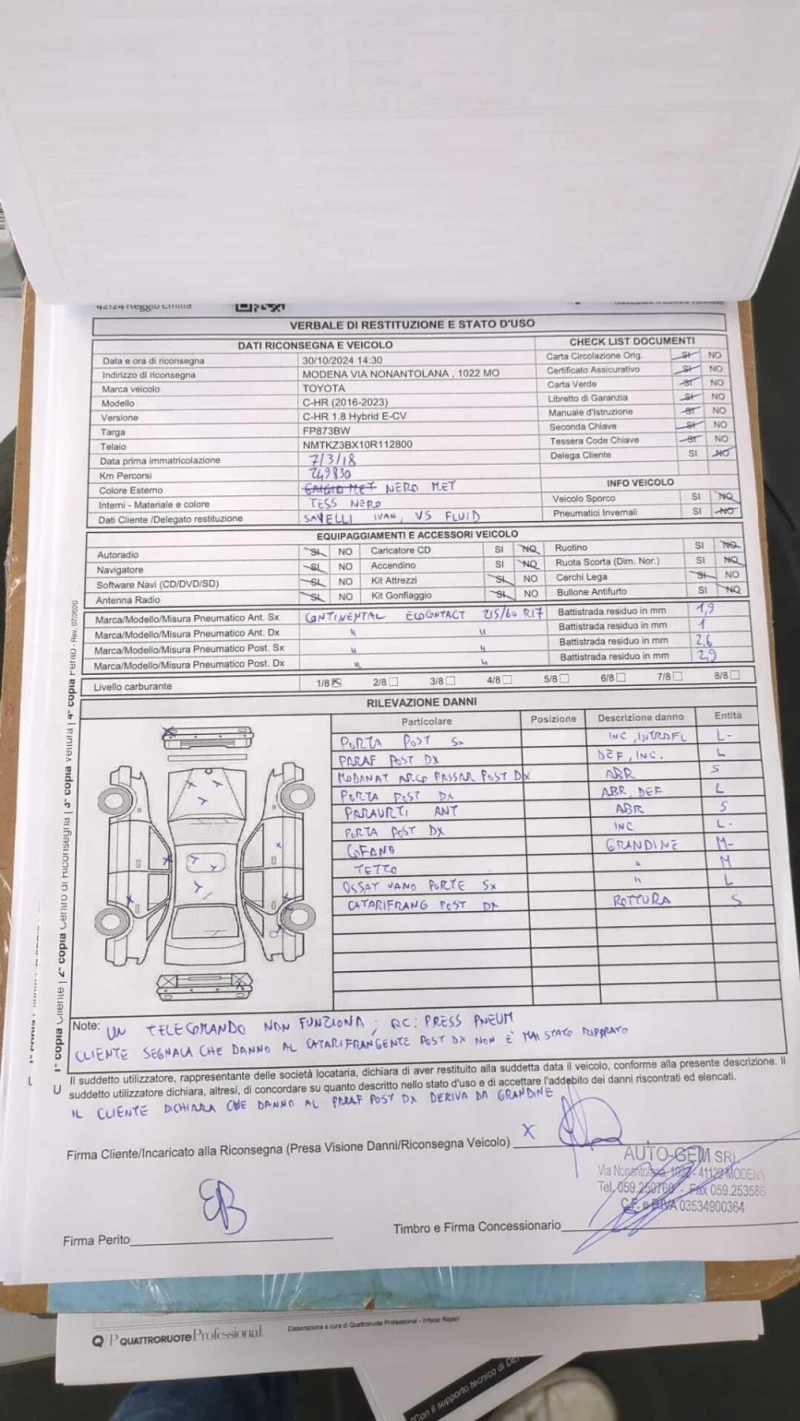 42124 Reggio Emilia
VERBALE DI RESTITUZIONE E STATO D'USO
DATI RICONSEGNA E VEICOLO
Data e ora di riconsegna 30/10/2024 14:30
Indirizzo di riconsegna MODENA VIA NONANTOLANA , 1022 MO
Marca veicolo TOYOTA
Modello C-HR (2016-2023)
Versione C-HR 1.8 Hybrid E-CV
Targa FP873BW
Telaio NMTKZ3BX10R112800
Data prima immatricolazione 7/3/18
Km Percorsi 249830
Colore Esterno GRIGIO MET NERO MET
Interni - Materiale e colore TESS NERO
Dati Cliente /Delegato restituzione SAVELLI IVAN, VS FLUID
CHECK LIST DOCUMENTI
Carta Circolazione Orig. SI NO
Certificato Assicurativo SI NO
Carta Verde SI NO
Libretto di Garanzia SI NO
Manuale d'Istruzione SI NO
Seconda Chiave SI NO
Tessera Code Chiave SI NO
Delega Cliente SI NO
INFO VEICOLO
Veicolo Sporco SI NO
Pneumatici Invernali SI NO
EQUIPAGGIAMENTI E ACCESSORI VEICOLO
Autoradio SI NO Caricatore CD SI NO Ruotino SI NO
Navigatore SI NO Accendino SI NO Ruota Scorta (Dim. Nor.) SI NO
Software Navi (CD/DVD/SD) SI NO Kit Attrezzi SI NO Cerchi Lega SI NO
Antenna Radio SI NO Kit Gonfiaggio SI NO Bullone Antifurto SI NO
Marca/Modello/Misura Pneumatico Ant. Sx CONTINENTAL ECOCONTACT 215/60 R17 Battistrada residuo in mm 1,9
Marca/Modello/Misura Pneumatico Ant. Dx " " Battistrada residuo in mm 1
Marca/Modello/Misura Pneumatico Post. Sx " " Battistrada residuo in mm 2,6
Marca/Modello/Misura Pneumatico Post. Dx " " Battistrada residuo in mm 2,9
Livello carburante 1/8 2/8 3/8 4/8 5/8 6/8 7/8 8/8
RILEVAZIONE DANNI
Particolare Posizione Descrizione danno Entità
PORTA POST SX INC, INTROFL L-
PARAF POST DX DEF, INC. L
MODANAT ARCO PASSAR POST DX ABR S
PORTA POST DX ABR, DEF L
PARAURTI ANT ABR S
PORTA POST DX INC L-
COFANO GRANDINE M-
TETTO " M
OSSAT VANO PORTE SX " L
CATARIFRANG POST DX ROTTURA S
Note: UN TELECOMANDO NON FUNZIONA; RC: PRESS PNEUM
CLIENTE SEGNALA CHE DANNO AL CATARIFRANGENTE POST DX NON E' MAI STATO RIPARATO
Il suddetto utilizzatore, rappresentante delle società locataria, dichiara di aver restituito alla suddetta data il veicolo, conforme alla presente descrizione. Il
suddetto utilizzatore dichiara, altresì, di concordare su quanto descritto nello stato d'uso e di accettare l'addebito dei danni riscontrati ed elencati.
IL CLIENTE DICHIARA CHE DANNO AL PARAF POST DX DERIVA DA GRANDINE
Firma Cliente/Incaricato alla Riconsegna (Presa Visione Danni/Riconsegna Veicolo) X
AUTO-GEM SRL
Via Nonantolana, 1022 - 41122 MODENA
Tel. 059.250760 - Fax 059.253586
C.F. e P.IVA 03534900364
Firma Perito
Timbro e Firma Concessionario
1ª copia Cliente | 2ª copia Centro di Riconsegna | 3ª copia Ventura | 4ª copia Perito - Rev. 07/2020
QUATTRORUOTE Professional
Elaborazione a cura di Quattroruote Professional - Infocar Repair
"Con il supporto tecnico di